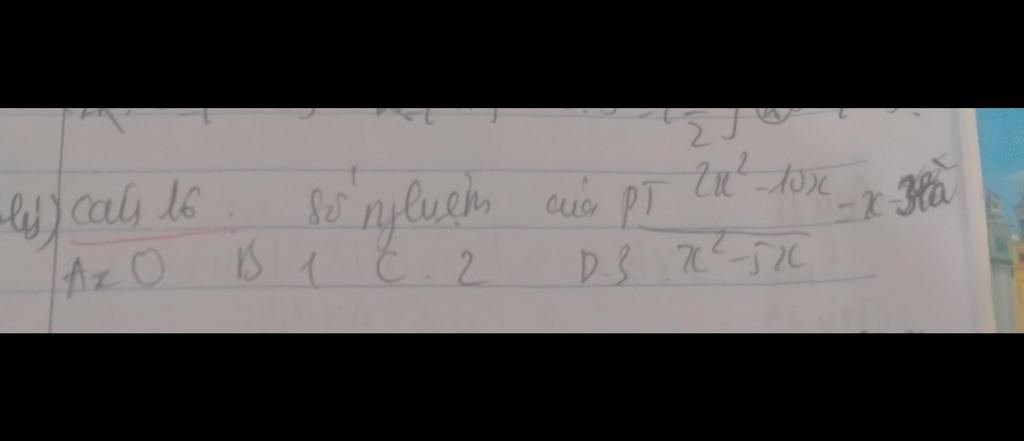 câu 16. Số nghiệm của PT 2x² - 10x = x - 3 là
A. 0 B 1 C. 2 D. 3 x² - 5x